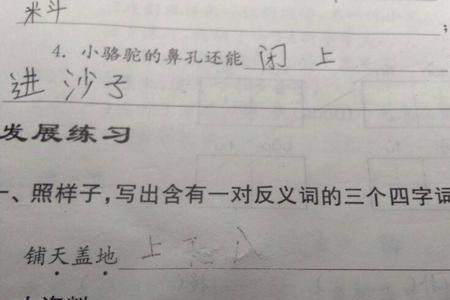 米斗
4. 小骆驼的鼻孔还能 闭 上
进 沙子
发展练习
一、照样子,写出含有一对反义词的三个四字词
铺天盖地 上